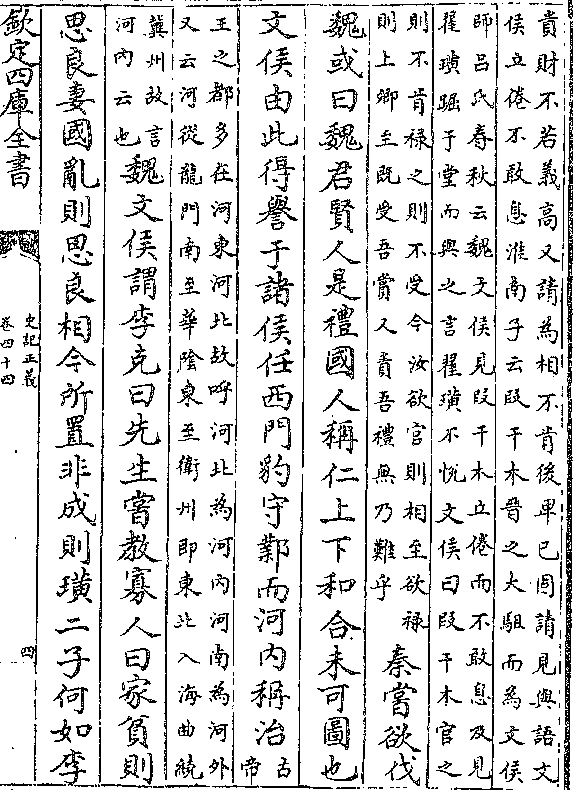 貴財不若義高又請為相不肯後卑己固請見與語文
侯立倦不敢息淮南子云段干木晉之大駔而為文侯
師吕氏春秋云魏文侯見段干木立倦而不敢息及見
翟璜踞于堂而與之言翟璜不悦文侯曰段干木官之
則不肯禄之則不受今汝欲官則相至欲禄
則上卿至既受吾賞又責吾禮無乃難乎
秦嘗欲伐
魏或曰魏君賢人是禮國人稱仁上下和合未可圖也
文侯由此得譽于諸侯任西門豹守鄴而河内稱治
古
帝
王之都多在河東河北故呼河北為河内河南為河外
又云河從龍門南至華陰東至衛州即東北入海曲繞
冀州故言
河内云也
魏文侯謂李克曰先生嘗教寡人曰家貧則
思良妻國亂則思良相今所置非成則璜二子何如李
欽定四庫全書
史記正義
卷四十四
四